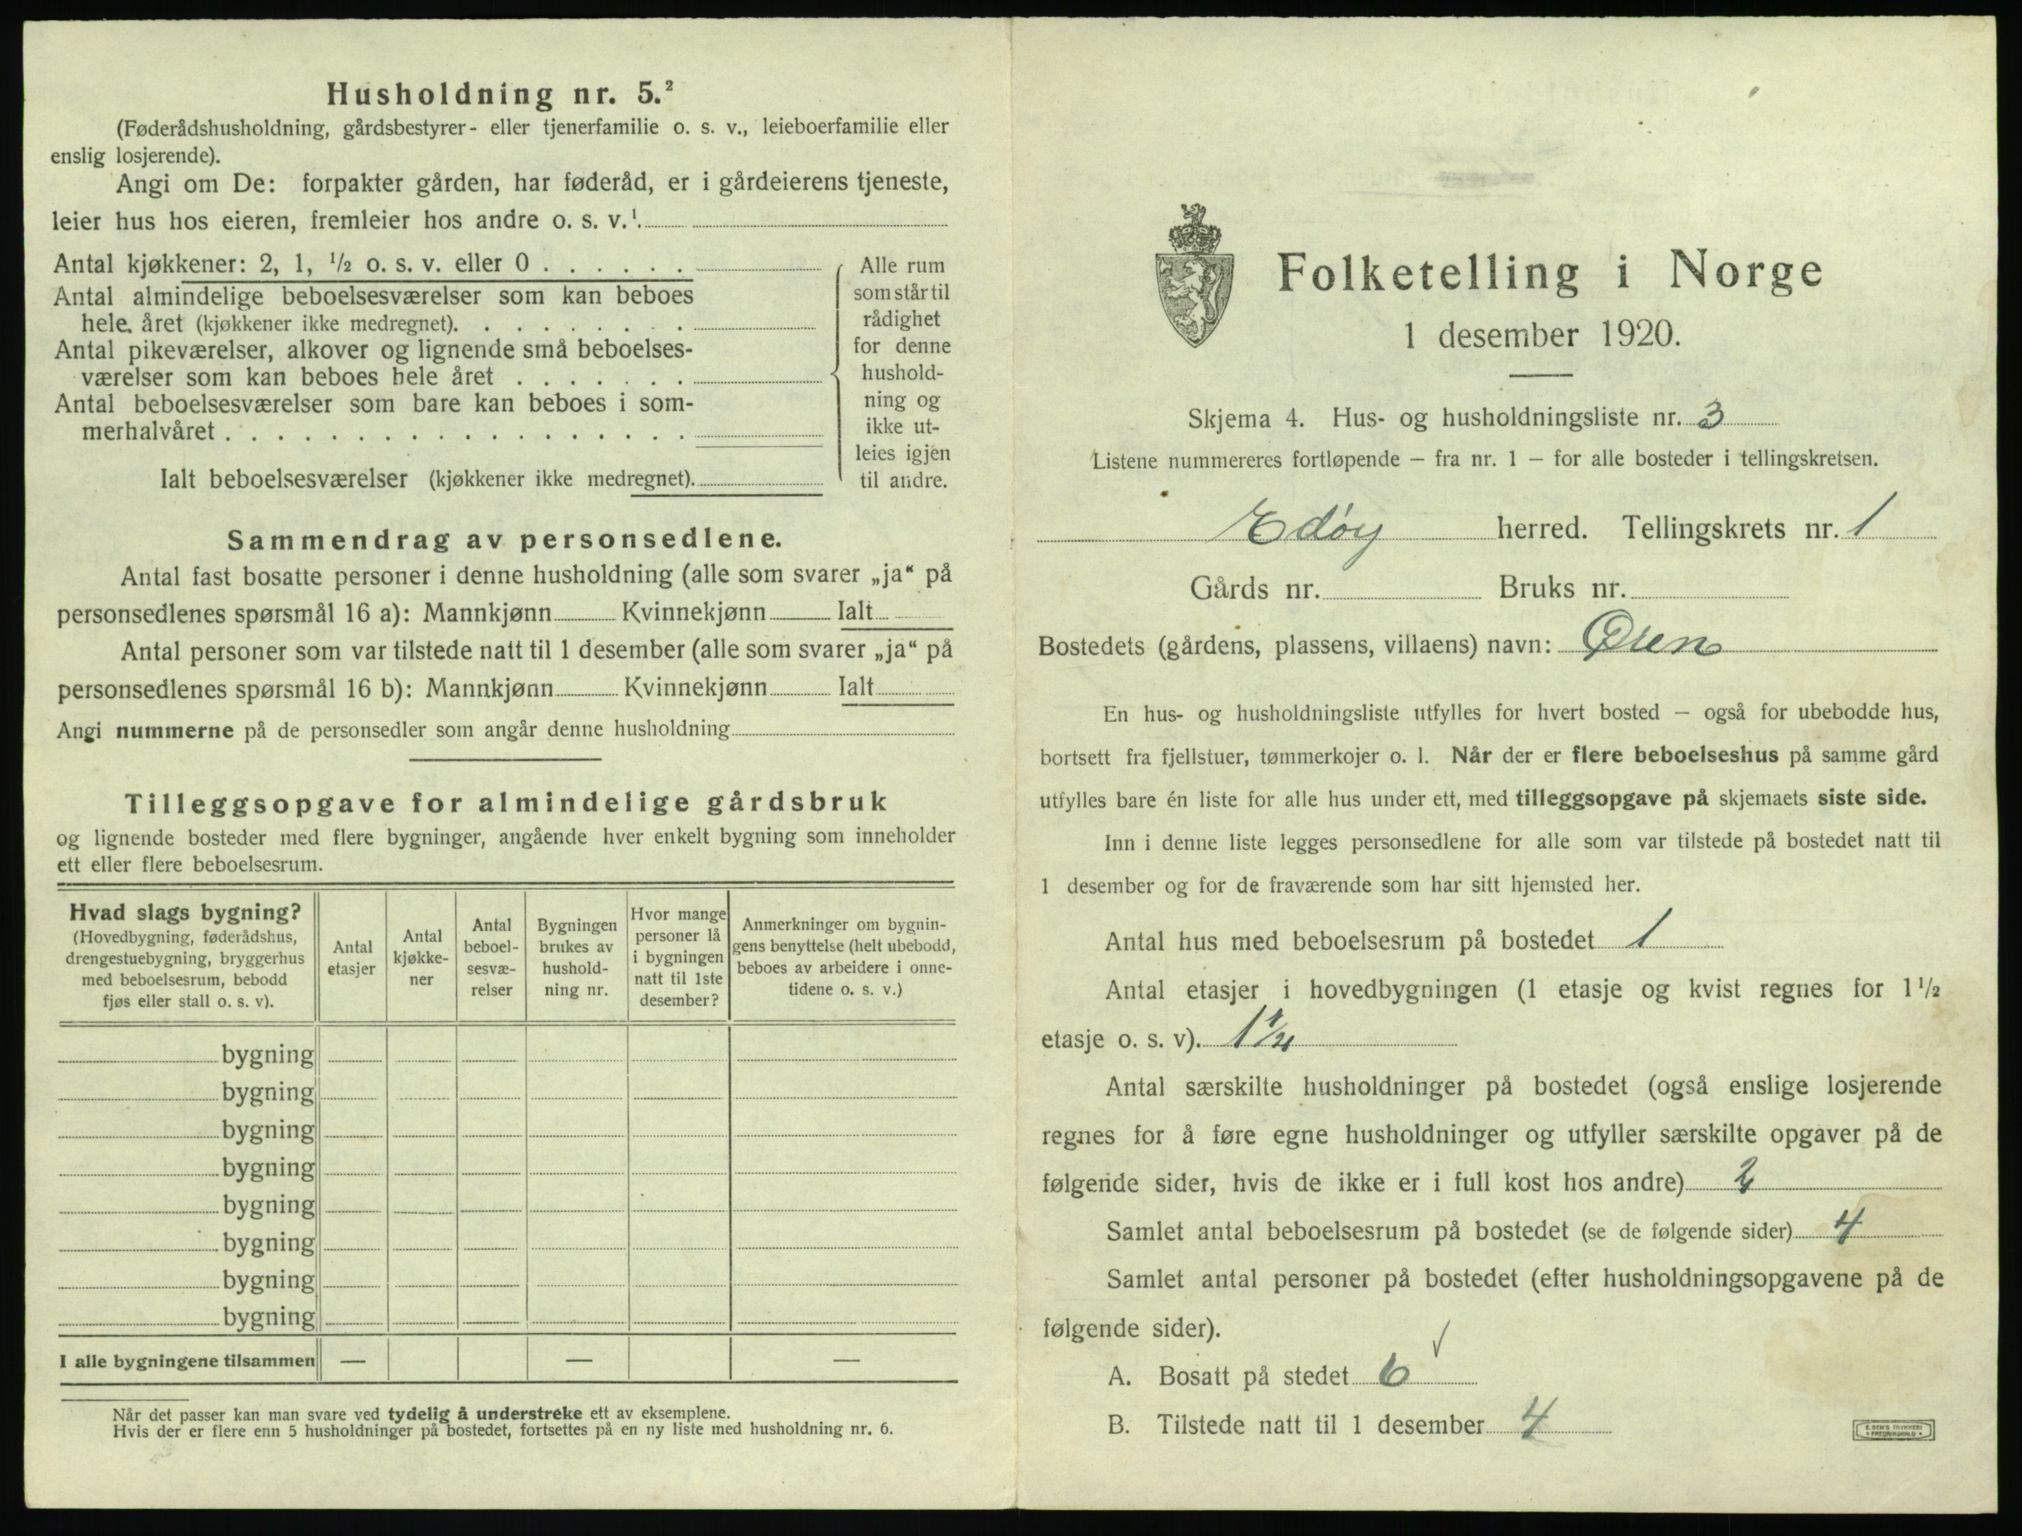 Husholdning nr. 5.²
(Føderådshusholdning, gårdsbestyrer- eller tjenerfamilie o. s. v., leieboerfamilie eller
enslig losjerende).
Angi om De: forpakter gården, har føderåd, er i gårdeierens tjeneste,
leier hus hos eieren, fremleier hos andre o. s. v.¹.
Antal kjøkkener: 2, 1, ½ o. s. v. eller 0 . . . . . .
Antal almindelige beboelsesværelser som kan beboes
hele. året (kjøkkener ikke medregnet). . . . . . . . .
Antal pikeværelser, alkover og lignende små beboelses-
værelser som kan beboes hele året . . . . . . .
Antal beboelsesværelser som bare kan beboes i som-
merhalvåret . . . . . . . . . . . . . . . . . .
Ialt beboelsesværelser (kjøkkener ikke medregnet).
Alle rum
som står til
rådighet
for denne
hushold-
ning og
ikke ut-
leies igjen
til andre.
Sammendrag av personsedlene.
Antal fast bosatte personer i denne husholdning (alle som svarer „ja“ på
personsedlenes spørsmål 16 a): Mannkjønn Kvinnekjønn Ialt
Antal personer som var tilstede natt til 1 desember (alle som svarer „ja“ på
personsedlenes spørsmål 16 b): Mannkjønn Kvinnekjønn Ialt
Angi nummerne på de personsedler som angår denne husholdning
Tilleggsopgave for almindelige gårdsbruk
og lignende bosteder med flere bygninger, angående hver enkelt bygning som inneholder
ett eller flere beboelsesrum.
Hvad slags bygning?
(Hovedbygning, føderådshus,
drengestuebygning, bryggerhus
med beboelsesrum, bebodd
fjøs eller stall o. s. v).
Antal
etasjer
Antal
kjøkke-
ner
Antal
beboel-
sesvæ-
relser
Bygningen
brukes av
hushold-
ning nr.
Hvor mange
personer lå
i bygningen
natt til 1ste
desember?
Anmerkninger om bygnin-
gens benyttelse (helt ubebodd,
beboes av arbeidere i onne-
tidene o. s. v.)
bygning
bygning
bygning
bygning
bygning
bygning
bygning
bygning
I alle bygningene tilsammen — — —
Når det passer kan man svare ved tydelig å understreke ett av eksemplene.
Hvis der er flere enn 5 husholdninger på bostedet, fortsettes på en ny liste med husholdning nr. 6.
Folketelling i Norge
1 desember 1920.
Skjema 4. Hus- og husholdningsliste nr. 3
Listene nummereres fortløpende – fra nr. 1 – for alle bosteder i tellingskretsen.
Edøy herred. Tellingskrets nr. 1
Gårds nr. Bruks nr.
Bostedets (gårdens, plassens, villaens) navn: Øren
En hus- og husholdningsliste utfylles for hvert bosted – også for ubebodde hus,
bortsett fra fjellstuer, tømmerkojer o. l. Når der er flere beboelseshus på samme gård
utfylles bare én liste for alle hus under ett, med tilleggsopgave på skjemaets siste side.
Inn i denne liste legges personsedlene for alle som var tilstede på bostedet natt til
1 desember og for de fraværende som har sitt hjemsted her.
Antal hus med beboelsesrum på bostedet 1
Antal etasjer i hovedbygningen (1 etasje og kvist regnes for 1½
etasje o. s. v). 1¼
Antal særskilte husholdninger på bostedet (også enslige losjerende
regnes for å føre egne husholdninger og utfyller særskilte opgaver på de
følgende sider, hvis de ikke er i full kost hos andre) 2
Samlet antal beboelsesrum på bostedet (se de følgende sider) 4
Samlet antal personer på bostedet (efter husholdningsopgavene på de
følgende sider).
A. Bosatt på stedet 6 √
B. Tilstede natt til 1 desember 4